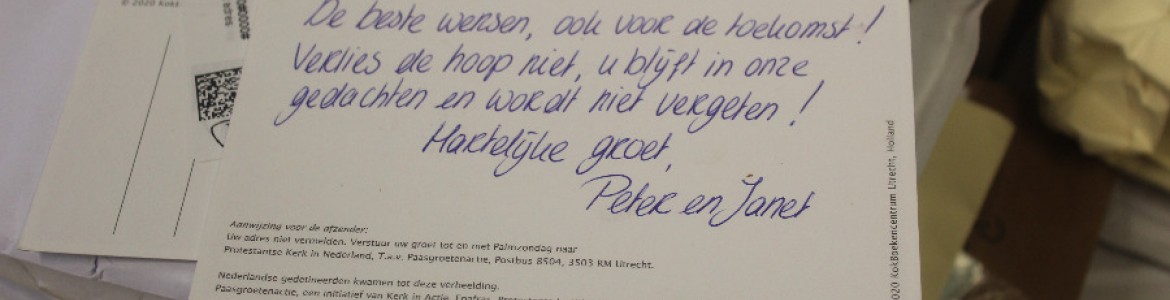 © 2020 Kok
adres
De beste wensen, ook voor de toekomst!
Verlies de hoop niet, u blijft in onze
gedachten en wordt niet vergeten!
Hartelijke groet,
Peter en Janet
Aanwijzing voor de afzender:
Uw adres niet vermelden. Verstuur uw groet tot en met Palmzondag naar
Protestantse Kerk in Nederland, T.a.v. Paasgroetenactie, Postbus 8504, 3503 RM Utrecht.
Nederlandse gedetineerden kwamen tot deze verbeelding.
Paasgroetenactie, een initiatief van Kerk in Actie,
2020 KokBoekencentrum Utrecht, Holland